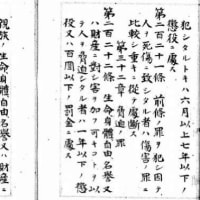 犯シタルトキハ六月以上七年以下ノ
懲役ニ處ス
第二百二十一條　前條ノ罪ヲ犯シ因テ
人ヲ死傷ニ致シタル者ハ傷害ノ罪ニ
比較シ重キニ從テ處斷ス
第三十二章　脅迫ノ罪
第二百二十二條　生命身體自由名譽又
ハ財產ニ對シ害ヲ加フ可キコトヲ以
テ人ヲ脅迫シタル者ハ一年以下ノ懲
役又ハ百圓以下ノ罰金ニ處ス
親族ノ生命身體自由名譽又ハ財產ニ